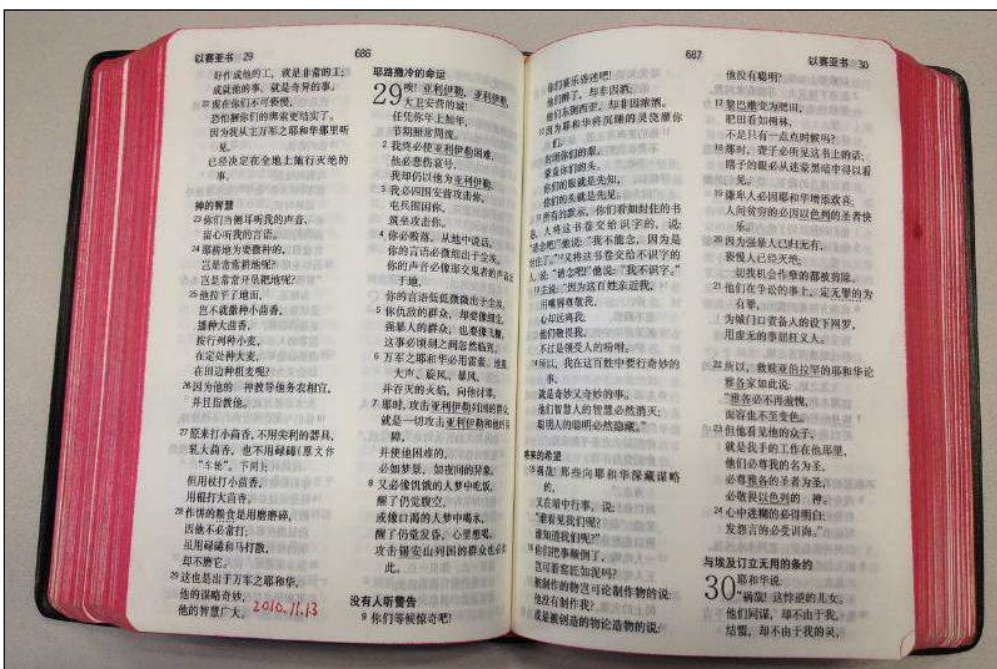 以赛亚书 29
686
好作成他的工，就是非常的工；
成就他的事，就是奇异的事。
22 现在你们不可亵慢，
恐怕捆你们的绑索更结实了。
因为我从主万军之耶和华那里听
见，
已经决定在全地上施行灭绝的
事。
神的智慧
23 你们当侧耳听我的声音，
留心听我的言语。
24 那耕地为要撒种的，
岂是常常耕地呢？
岂是常常开垦耙地呢？
25 他拉平了地面，
岂不就撒种小茴香，
播种大茴香，
按行列种小麦，
在定处种大麦，
在田边种粗麦呢？
26 因为他的 神教导他务农相宜，
并且指教他。
27 原来打小茴香，不用尖利的器具，
轧大茴香，也不用碌碡（原文作
“车轮”。下同）；
但用杖打小茴香，
用棍打大茴香。
28 作饼的粮食是用磨磨碎，
因他不必常打；
虽用碌碡和马打散，
却不磨它。
29 这也是出于万军之耶和华，
他的谋略奇妙，
他的智慧广大。 2010.11.13
耶路撒冷的命运
29 唉！亚利伊勒，亚利伊勒，
大卫安营的城！
任凭你年上加年，
节期照常周流。
2 我终必使亚利伊勒困难，
他必悲伤哀号，
我却仍以他为亚利伊勒。
3 我必四围安营攻击你，
屯兵围困你，
筑垒攻击你。
4 你必败落，从地中说话，
你的言语必微细出于尘埃。
你的声音必像那交鬼者的声音出
于地，
你的言语低低微微出于尘埃。
5 你仇敌的群众，却要像细尘；
强暴人的群众，也要像飞糠。
这事必顷刻之间忽然临到。
6 万军之耶和华必用雷轰、地震、
大声、旋风、暴风，
并吞灭的火焰，向他讨罪。
7 那时，攻击亚利伊勒列国的群众，
就是一切攻击亚利伊勒和他的保
障，
并使他困难的，
必如梦景，如夜间的异象。
8 又必像饥饿的人梦中吃饭，
醒了仍觉腹空；
或像口渴的人梦中喝水，
醒了仍觉发昏，心里想喝。
攻击锡安山列国的群众也必如
此。
没有人听警告
9 你们等候惊奇吧！
687
以赛亚书 30
你们宴乐昏迷吧！
他们醉了，却非因酒；
他们东倒西歪，却非因浓酒。
10 因为耶和华将沉睡的灵浇灌你
们，
封闭你们的眼，
蒙盖你们的头。
你们的眼就是先知，
你们的头就是先见。
11 所有的默示，你们看如封住的书
卷，人将这书卷交给识字的，说：
“请念吧！”他说：“我不能念，因为是
封住了。”12 又将这书卷交给不识字的
人，说：“请念吧！”他说：“我不识字。”
13 主说：“因为这百姓亲近我，
用嘴唇尊敬我，
心却远离我；
他们敬畏我，
不过是领受人的吩咐。
14 所以，我在这百姓中要行奇妙的
事，
就是奇妙又奇妙的事。
他们智慧人的智慧必然消灭；
聪明人的聪明必然隐藏。”
将来的希望
15 祸哉！那些向耶和华深藏谋略
的，
又在暗中行事，说：
“谁看见我们呢？
谁知道我们呢？”
16 你们把事颠倒了，
岂可看窑匠如泥吗？
被制作的物岂可论制作物的说：
他没有制作我？
或是被创造的物论造物的说：
他没有聪明？
17 黎巴嫩变为肥田，
肥田看如树林，
不是只有一点点时候吗？
18 那时，聋子必听见这书上的话；
瞎子的眼必从迷蒙黑暗中得以看
见。
19 谦卑人必因耶和华增添欢喜；
人间贫穷的必因以色列的圣者快
乐。
20 因为强暴人已归无有，
亵慢人已经灭绝，
一切找机会作孽的都被剪除。
21 他们在争讼的事上，定无罪的为
有罪，
为城门口责备人的设下网罗，
用虚无的事屈枉义人。
22 所以，救赎亚伯拉罕的耶和华论
雅各家如此说：
“雅各必不再羞愧，
面容也不至变色。
23 但他看见他的众子，
就是我手的工作在他那里，
他们必尊我的名为圣，
必尊雅各的圣者为圣，
必敬畏以色列的 神。
24 心中迷糊的必得明白；
发怨言的必受训诲。”
与埃及订立无用的条约
30 耶和华说：
“祸哉！这悖逆的儿女。
他们同谋，却不由于我，
结盟，却不由于我的灵，